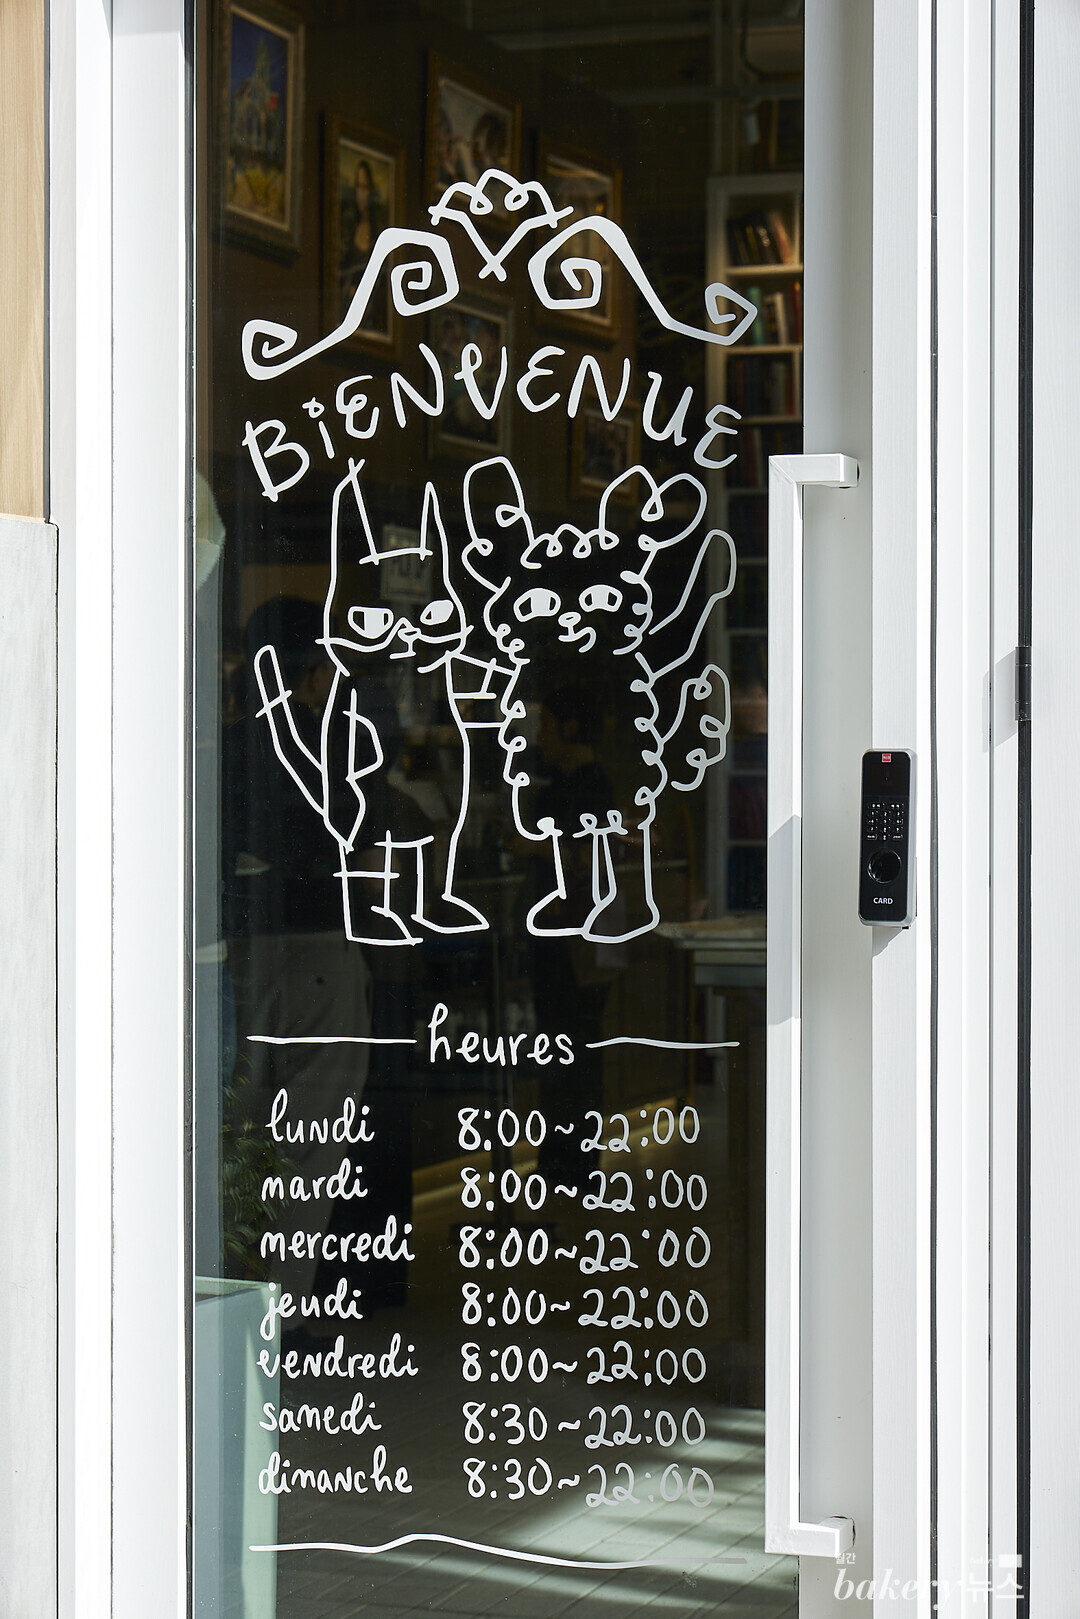 BiENVENUE
heures
lundi 8:00~22:00
mardi 8:00~22:00
mercredi 8:00~22:00
jeudi 8:00~22:00
vendredi 8:00~22:00
samedi 8:30~22:00
dimanche 8:30~22:00
CARD
월간
bakery 뉴스